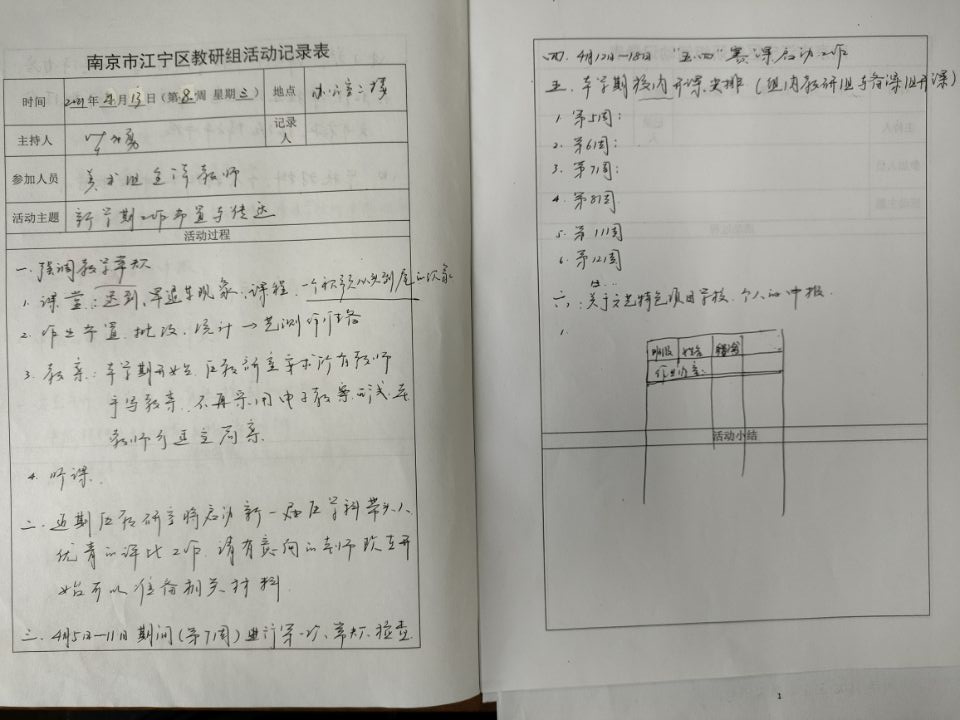 南京市江宁区教研组活动记录表
时间 2021年4月13日（第8周 星期三） 地点 办公室二楼
主持人 记录人
参加人员 美术组全体教师
活动主题 新学期工作布置与传达
活动过程
一.强调教学常规
1. 课堂：迟到、早退等现象、课程.
2. 作业布置、批改、统计→
3. 教案：本学期开始，区教研室要求所有教师
手写教案，不再采用电子教案
教师
4. 听课.
二.近期区教研室将启动新一届区学科带头人、
优青的评比工作，请有意向的老师现在开
始可以准备相关材料
三. 4月5日—11日期间（第7周）进行第一次常规检查
四. 4月12日—18日 "五四"赛课启动工作
五. 本学期校内开课安排（组内教研组与备课组开课）
1. 第5周：
2. 第6周：
3. 第7周：
4. 第8周
5. 第11周
6. 第12周
六：关于文艺特色项目学校、个人的申报.
1.
班级 姓名
作业内容：
活动小结
1